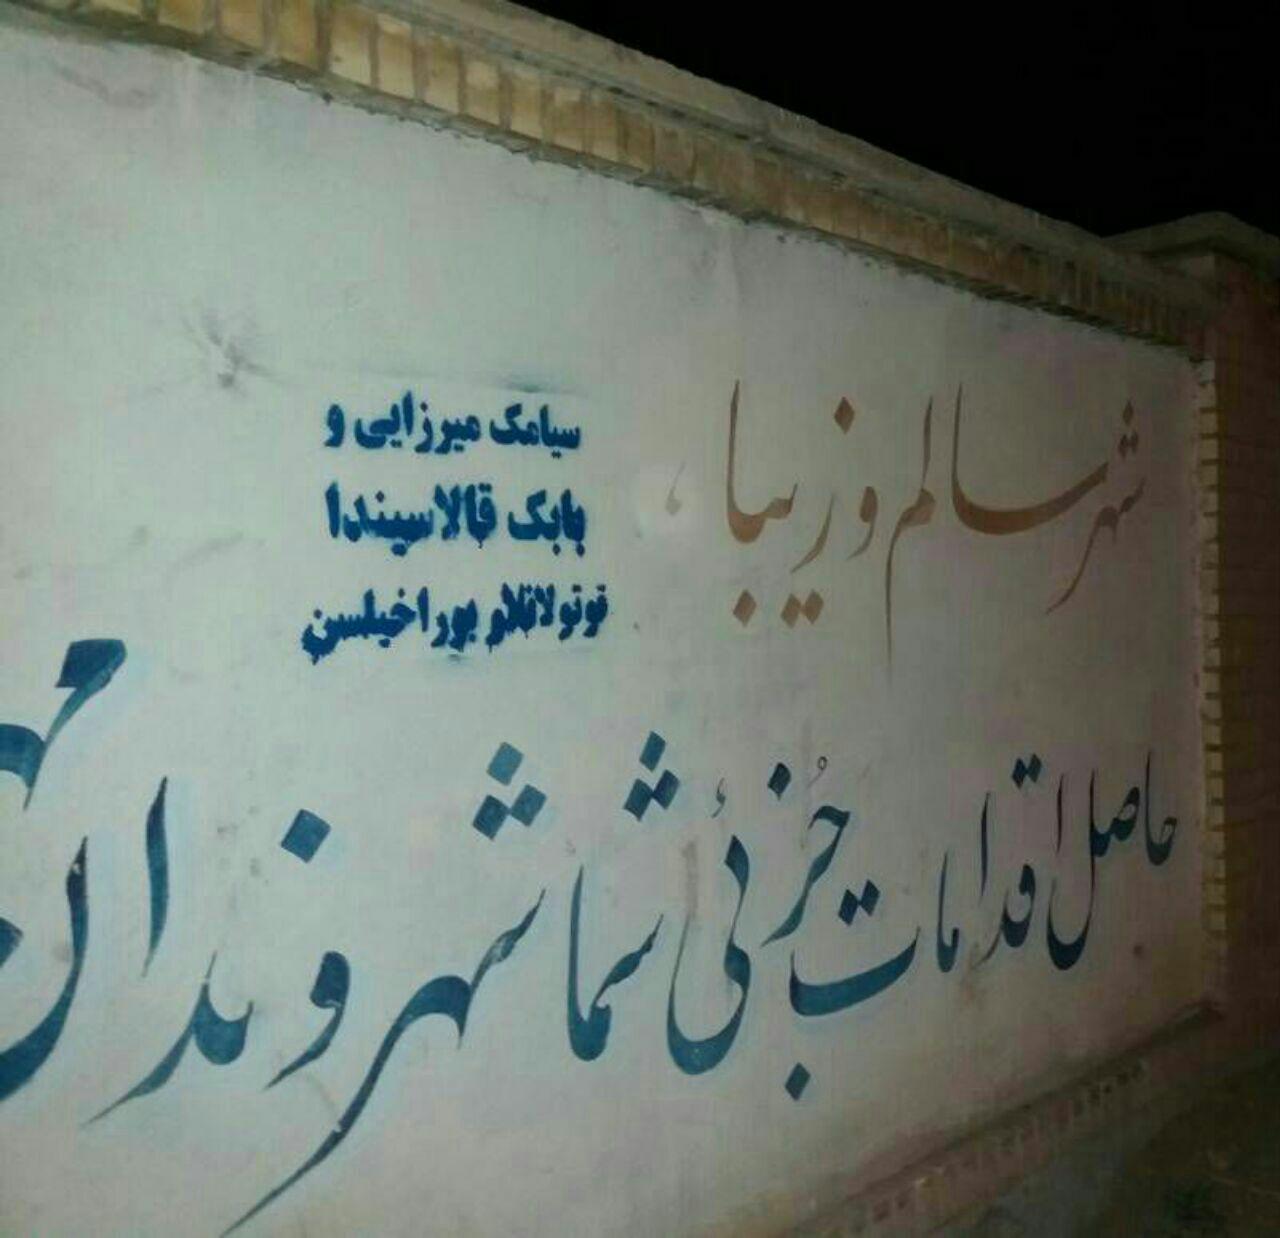 شهر سالم و زیبا ،
سیامک میرزایی و
بابک قالاسیندا
توتولانلار بوراخیلسین
حاصل اقدامات جُزئی شما شهروندان